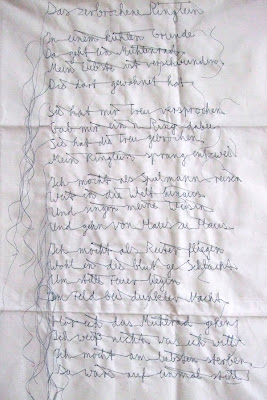 Das zerbrochene Ringlein
In einem kühlen Grunde
Da geht ein Mühlenrad
Mein Liebste ist verschwunden
Die dort gewohnet hat
Sie hat mir Treu versprochen
Gab mir ein'n Ring dabei
Sie hat die Treu gebrochen
Mein Ringlein sprang entzwei
Ich möcht als Spielmann reisen
Weit in die Welt hinaus
Und singen meine Weisen
Und gehn von Haus zu Haus
Ich möcht als Reiter fliegen
Wohl in die blut'ge Schlacht
Um stille Feuer liegen
Im Feld bei dunkler Nacht
Hör ich das Mühlrad gehen
Ich weiß nicht was ich will
Ich möcht am liebsten sterben
Da wärs auf einmal still